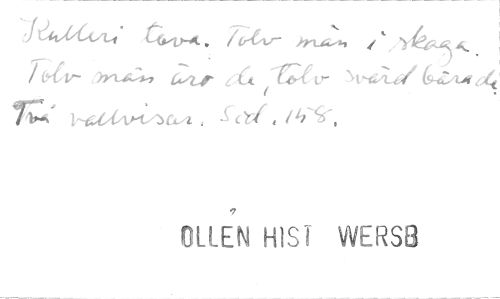 Kulleri tova. Tolv män i skoga.
Tolv män äro de, tolv svärd bära de.
Två vallvisor. Sid. 158.
OLLÉN HIST WERSB